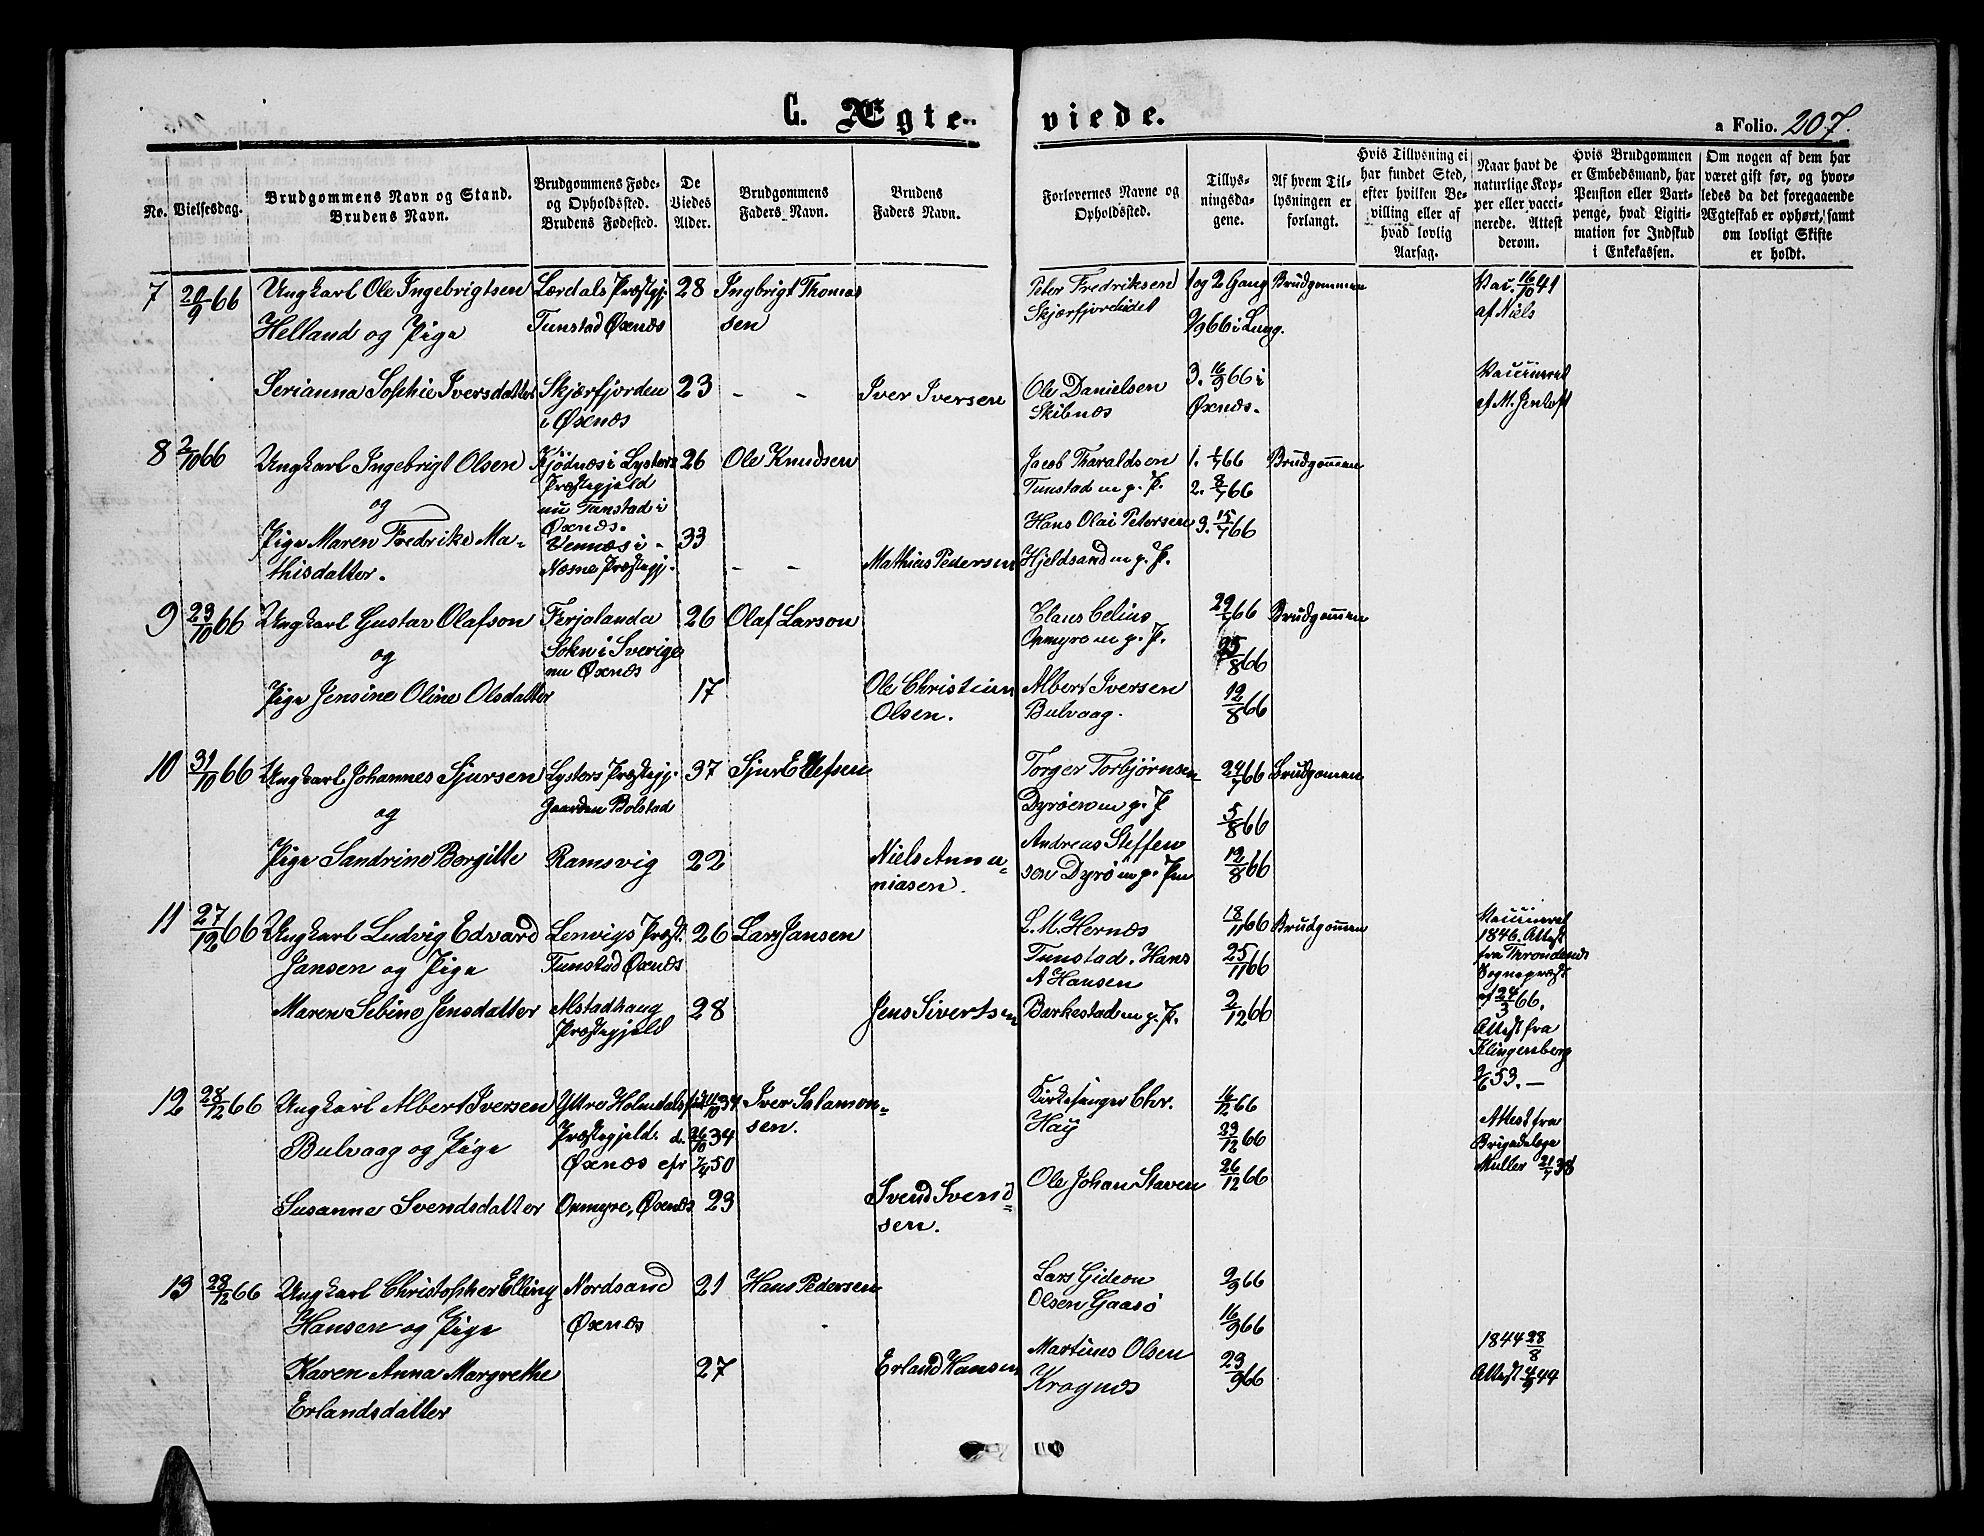 C. Ægte-
viede.
a Folio. 207.
No.
Vielsesdag.
Brudgommens Navn og Stand.
Brudens Navn.
Brudgommens Føde-
og Opholdssted.
Brudens Fødested.
De
Viedes
Alder.
Brudgommens
Faders Navn.
Brudens
Faders Navn.
Forlovernes Navne og
Opholdssted.
Tillys-
ningsda-
gene.
Af hvem Til-
lysningen er
forlangt.
Hvis Tillysning ei
har fundet Sted,
efter hvilken Be-
villing eller af
hvad lovlig
Aarsag.
Naar havt de
naturlige Kop-
per eller vacci-
nerede. Attest
derom.
Hvis Brudgommen
er Embedsmand, har
Pension eller Vart-
penge, hvad Ligiti-
mation for Indskud
i Enkekassen.
Om nogen af dem har
været gift før, og hvor-
ledes da det foregaaende
Ægteskab er ophørt, samt
om lovligt Skifte
er holdt.
7 20/9 66 Ungkarl Ole Ingebrigtsen Lærdals Præstegj. 28 Ingbrigt Thomas Peter Fredriksen 1 og 2 Gang Brudgommen Vac. 16/10 41
Helland og Pige Tunstad Øxnæs sen Skjærfjordeidet 9/9 66 i Lang. af Niels
Serianna Sophie Iversdatter Skjærfjorden 23 - - Iver Iversen Ole Danielsen 3. 16/9 66 i Vaccineret
i Øxnæs Skibnæs Øxnæs. af M. Jentoft
8 2/10 66 Ungkarl Ingebrigt Olsen Kjødnæs i Lysters 26 Ole Knudsen Jacob Tharaldsen 1. 1/7 66 Brudgommen
Præstegjeld Tunstad m. p. P. 2. 8/7 66
og nu Tunstad i
Øxnæs. Hans Olai Petersen 3. 15/7 66
Pige Maren Fredrike Ma- Vennæs i 33
thisdatter. Næsne Præstegj. - - Mathias Pedersen Hjeldsand m. p. P.
9 23/10 66 Ungkarl Gustav Olafson Ferjalanda 26 Olaf Larson Claus Celius 29/7 66 Brudgommen
og Sokn i Sverige Opmyre m. p. P.
nu Øxnæs /8 66
Pige Jensine Oline Olsdatter 17 Ole Christian Albert Iversen 12/8 66
Olsen. Bulvaag.
10 31/10 66 Ungkarl Johannes Sjursen Lysters Præstegj. 37 Sjur Ellefsen Torger Torbjørnsen 29/7 66 Brudgommen
og Gaarden Bolstad Dyrøen m. p. P 5/8 66
Andreas Steffen
Pige Sandrine Borgitte Ramsvig 22 Niels Anna- sen Dyrø m. p. Pm 12/8 66
niasen.
11 27/12 66 Ungkarl Ludvig Edvard Lenvigs Præst. 26 Lars Jansen L. M. Hernæs 18/11 66 Brudgommen Vaccineret
Jansen og Pige Tunstad Øxnæs Tunstad. Hans 25/11 66 1846. Attest
A Hansen fra Throndenæs
Sognepræst
Maren Sebine Jensdatter Alstadhaug 28 Jens Sivertsen Barkestad m. p. P. 2/12 66 af 24/3 66.
Præstegjeld Attest fra
Klingenberg
2/6 53. —
12 28/12 66 Ungkarl Albert Iversen Yttre Holmedals 11/10 34 Iver Salamon- Kirkesanger Chr. 16/12 66
Bulvaag og Pige Præstegjeld d. 26/10 34 sen. Høy 23/12 66 Attest fra
Øxnæs cfr 7/4 50 Brigadelæge
Müller 21/7 38
Susanne Svendsdatter Opmyre, Øxnæs 23 Svend Svend- Ole Johan Staven 26/12 66
sen.
13 28/12 66 Ungkarl Christopher Elling Nordsand 21 Hans Pedersen Lars Gideon 2/9 66
Hansen og Pige Øxnæs Olsen Gaasø 16/9 66
Karen Anna Margrethe 27 Erland Hansen Martinus Olsen 23/9 66 1844 28/8
Erlandsdatter Kragnæs Attest 4/9 44